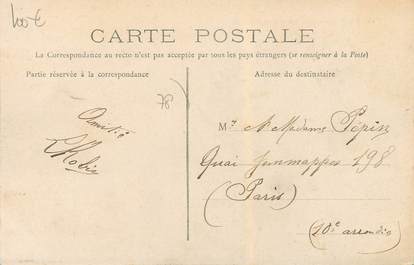 100€
CARTE POSTALE
La Correspondance au recto n'est pas acceptée par tous les pays étrangers (se renseigner à la Poste)
Partie réservée à la correspondance
Adresse du destinataire
78
Amitié
Robin
M.r & Madame Pépin
Quai Jemmapes 198
(Paris)
(10e arrondis)